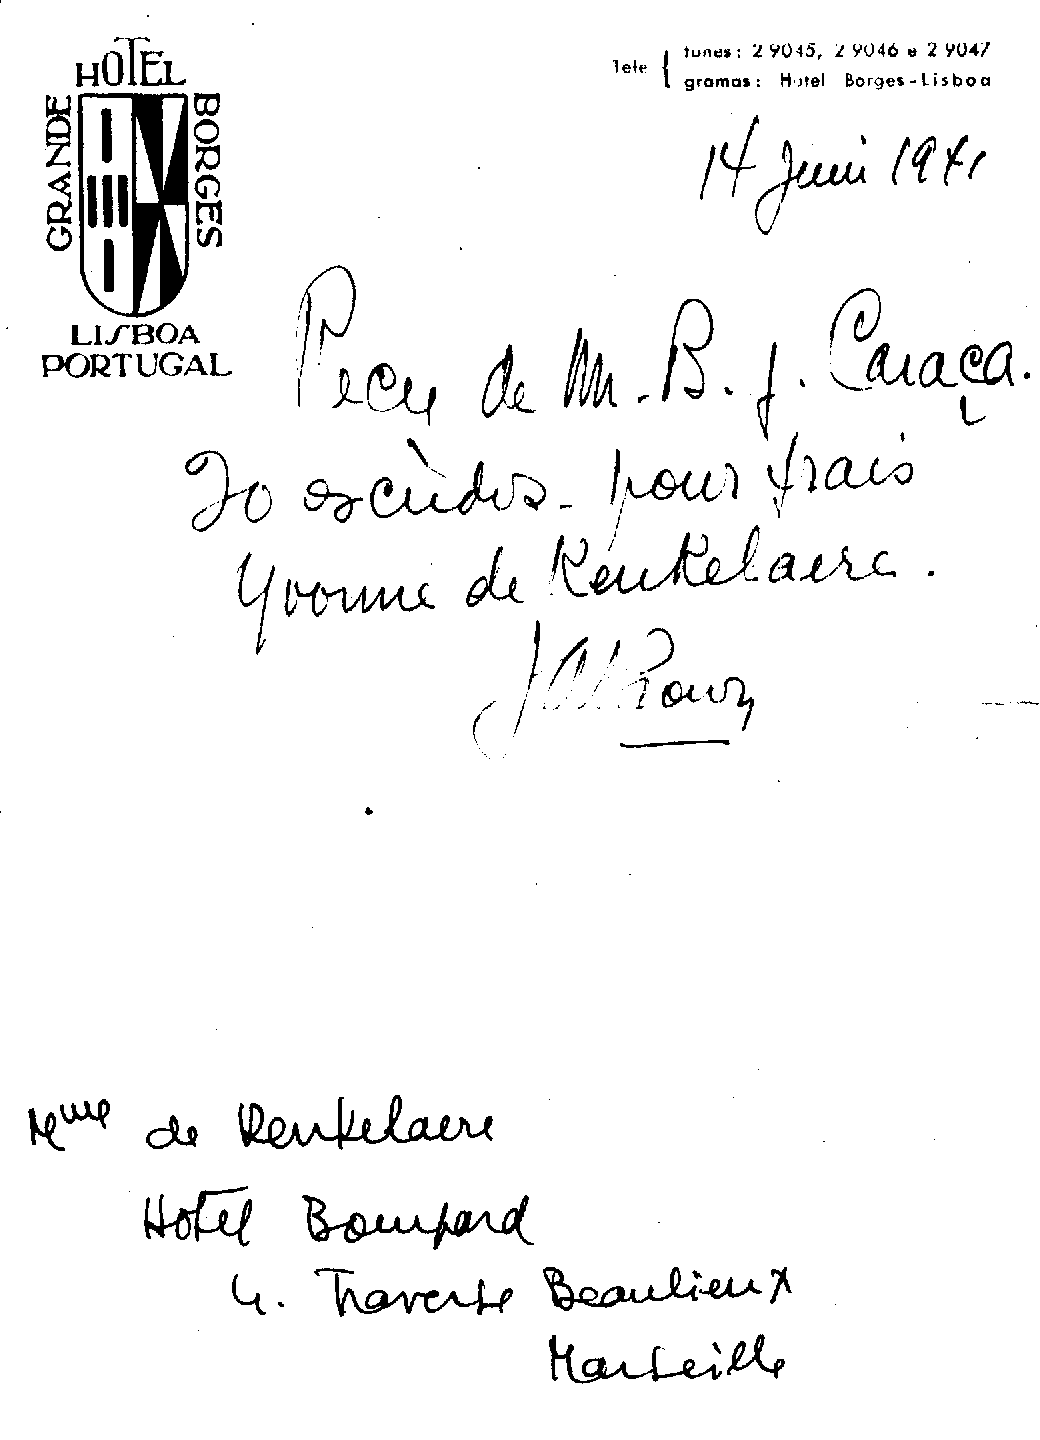 GRANDE HOTEL BORGES
LISBOA
PORTUGAL
Tele { fones: 2 9045, 2 9046 e 2 9047
gramas: Hotel Borges-Lisboa
14 Juin 1941
Reçu de M. B. J. Caraça.
escudos - pour frais
Yvonne de Kenkelaere.
Mme de Kenkelaere
Hotel Bompard
4. Traverse Beaulieux
Marseille